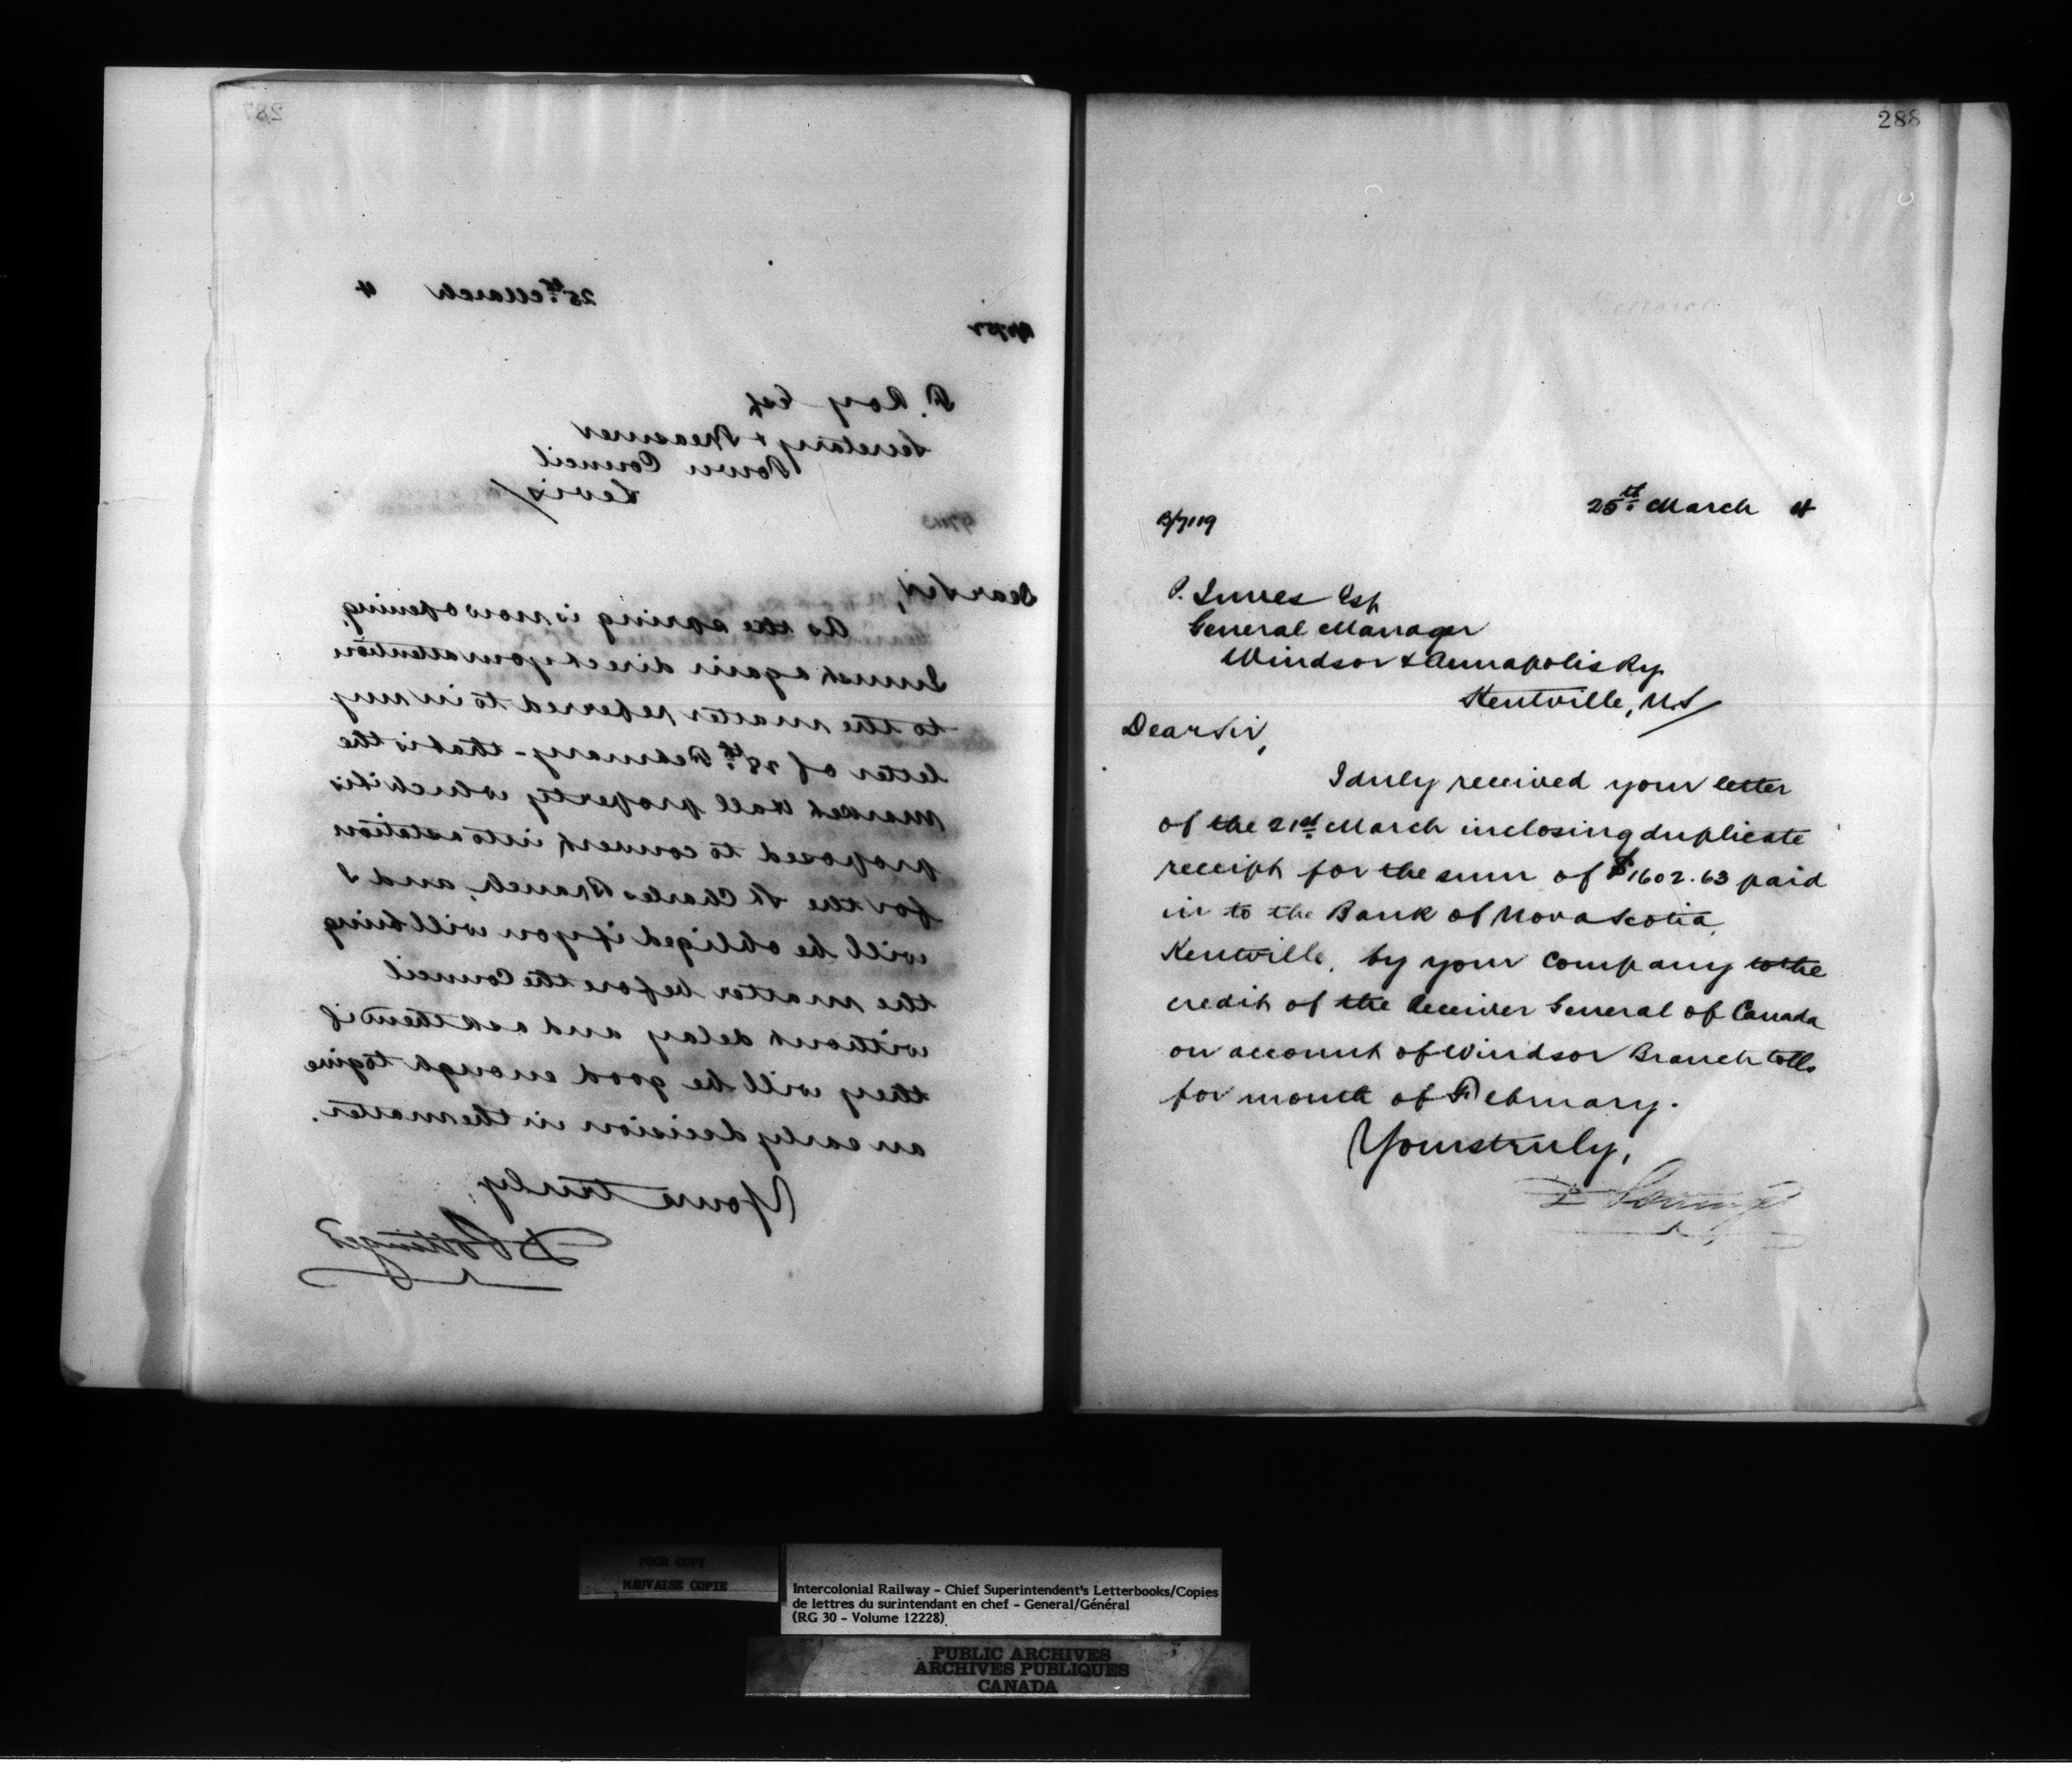 287
25th March 4
Roy Esq
Secretary & Treasurer
Town Council
Levis
Dear Sir,
As the spring is now opening,
I must again direct your attention
to the matter referred to in my
letter of 28th February - that is the
Market Hall property which it is
proposed to convert into a station
for the St Charles Branch, and I
will be obliged if you will bring
the matter before the Council
without delay and ask them if
they will be good enough to give
an early decision in the matter.
Yours truly,
D Pottinger
288
25th March 4
P. Innes Esq
General Manager
Windsor & Annapolis Ry
Kentville, N.S
Dear Sir,
I duly received your letter
of the 21st March inclosing duplicate
receipt for the sum of $1602.63 paid
in to the Bank of Nova Scotia,
Kentville, by your Company to the
credit of the Receiver General of Canada
on account of Windsor Branch tolls
for month of February.
Yours truly,
POOR COPY
MAUVAISE COPIE
Intercolonial Railway - Chief Superintendent's Letterbooks/Copies
de lettres du surintendant en chef - General/Général
(RG 30 - Volume 12228)
PUBLIC ARCHIVES
ARCHIVES PUBLIQUES
CANADA